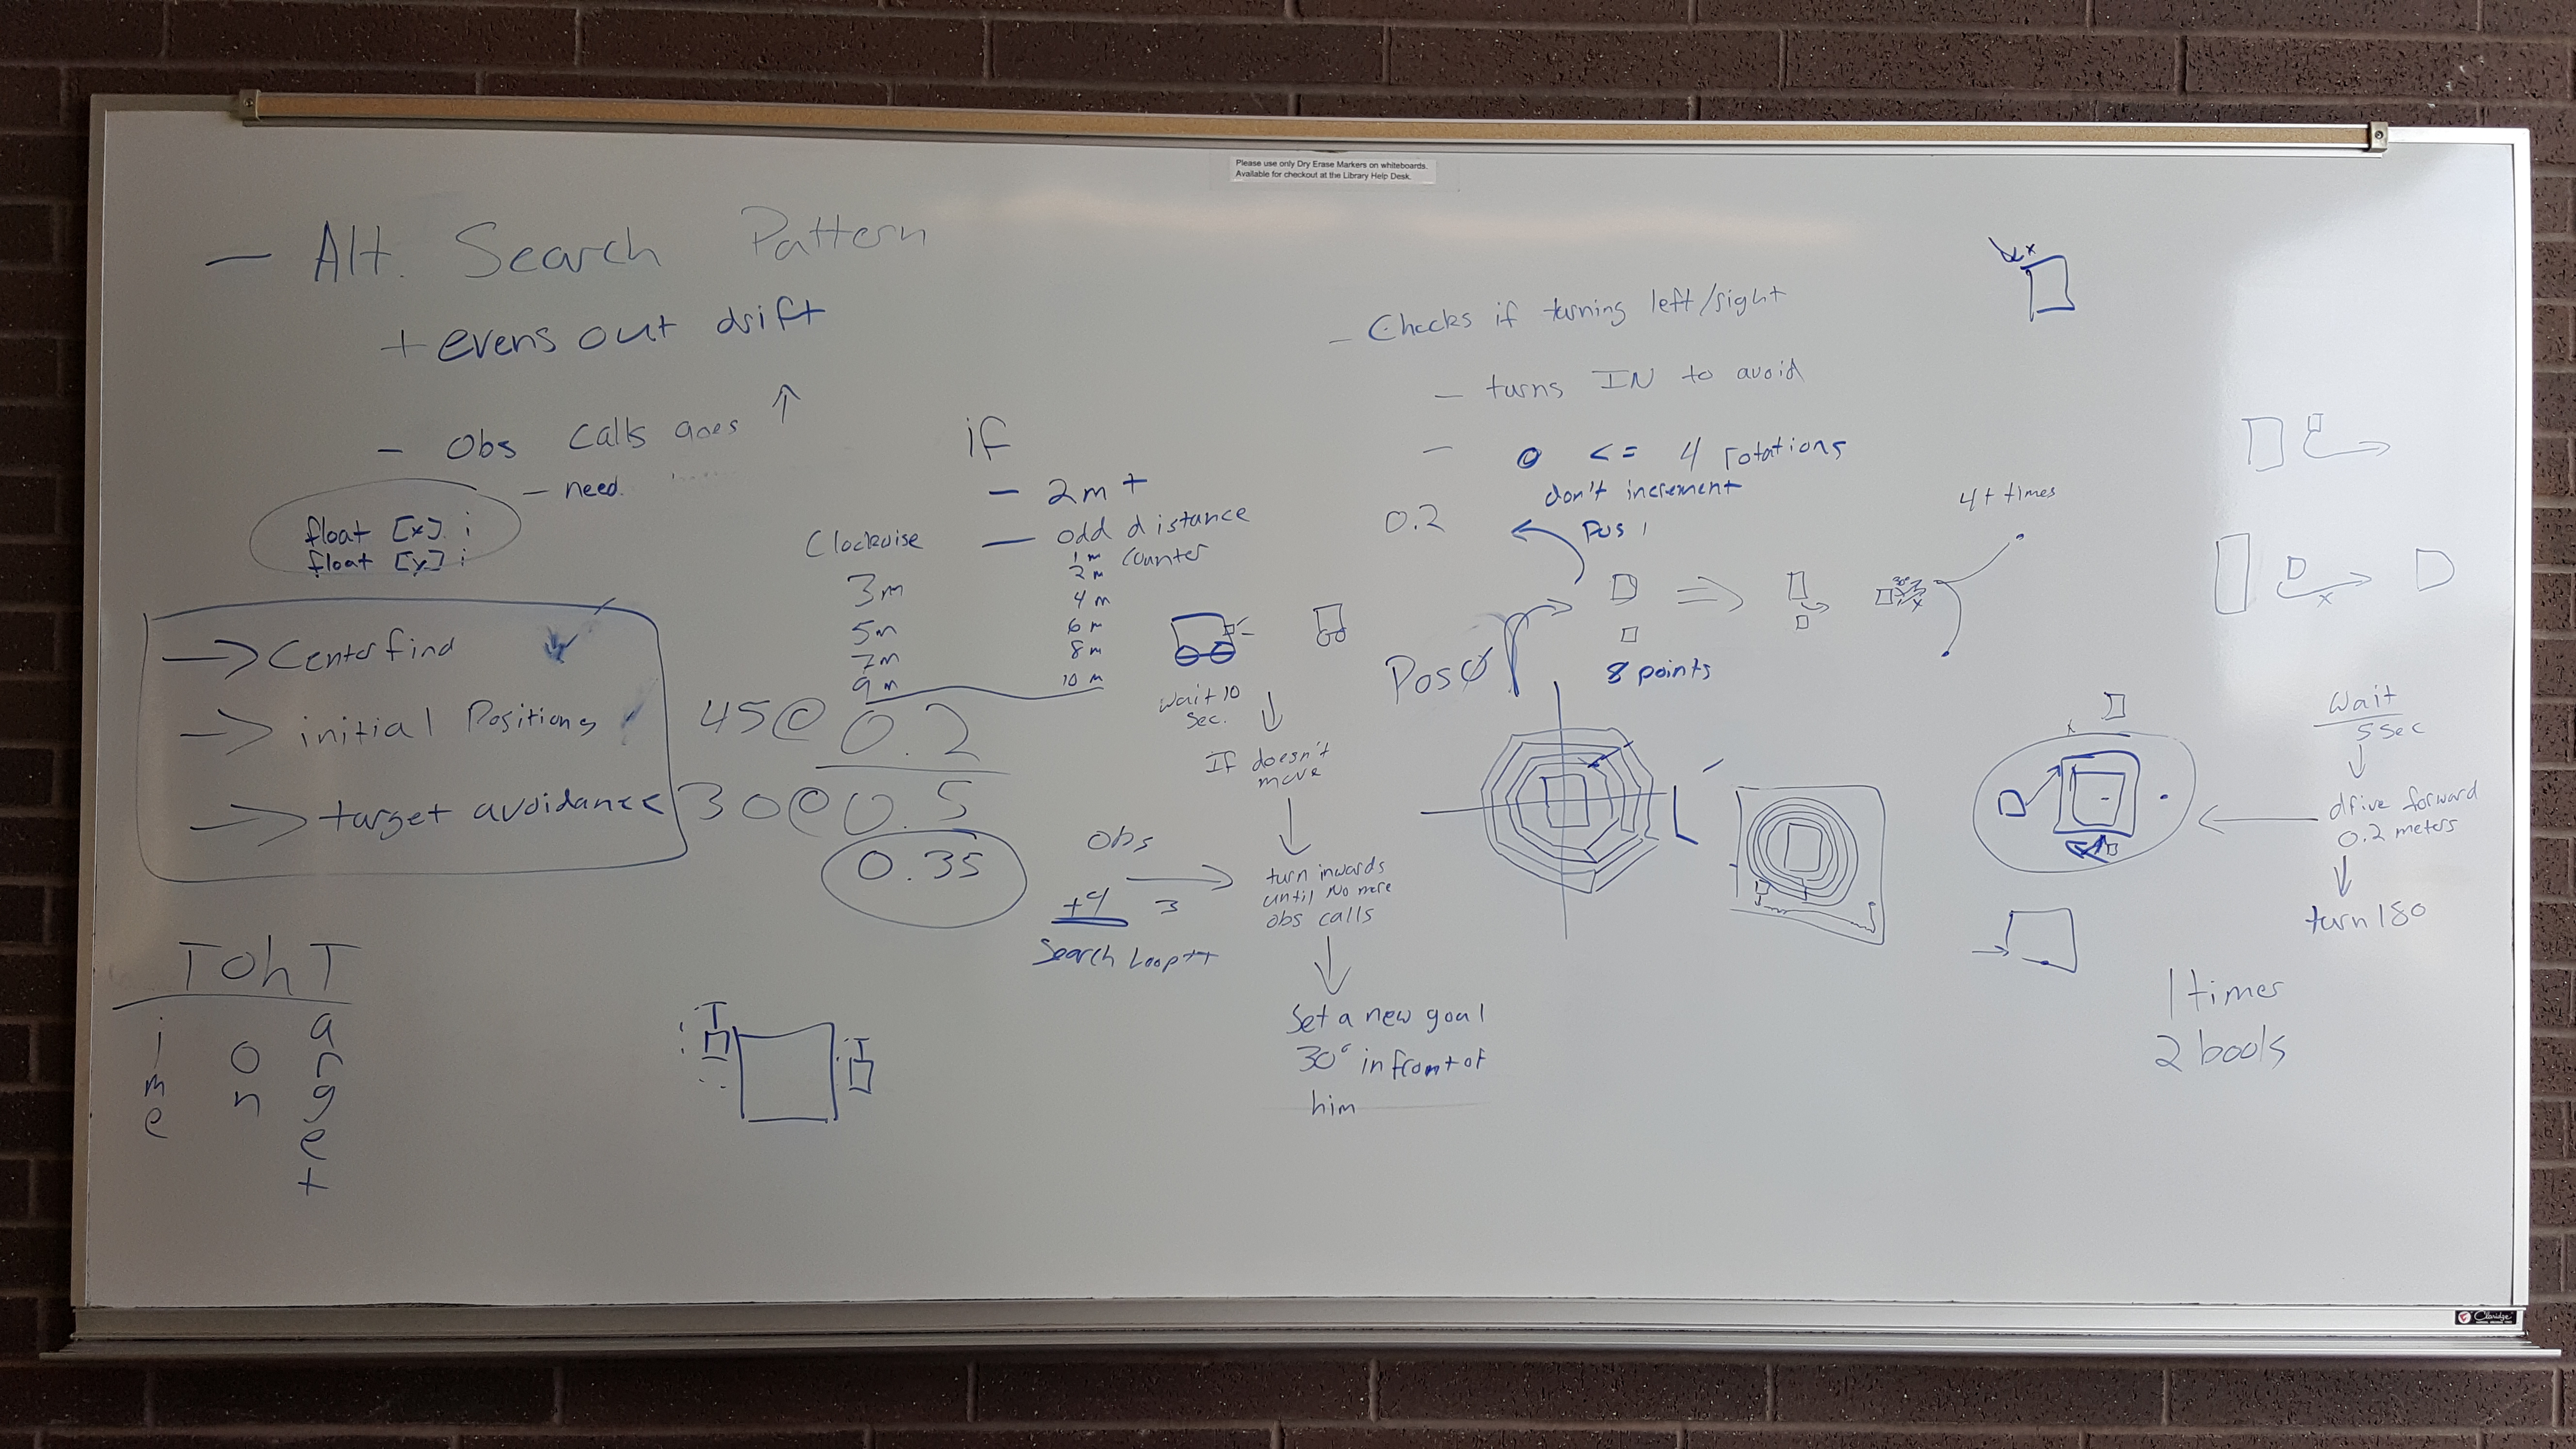 Please use only Dry Erase Markers on whiteboards.
Available for checkout at the Library Help Desk.
— Alt. Search Pattern
+ evens out drift
- Obs calls goes ↑
- need
float [x] i
float [y] i
→ Centerfind
→ initial Positions
→ target avoidance
T Oh T
i
m
e
o
n
a
r
g
e
t
if
- 2m +
— odd distance
Clockwise
3m
5m
7m
9m
counter
1m
2m
4m
6m
8m
10m
45@ 0.2
30@ 0.5
0.35
wait 10
sec.
↓
If doesn't
move
↓
Obs
+4 3
Search Loop++
→
turn inwards
until no more
obs calls
↓
Set a new goal
30° in front of
him
- Checks if turning left/right
- turns IN to avoid
- 0 <= 4 rotations
don't increment
0.2
Pos 1
Pos Ø
8 points
30°
4+ times
x
x
x
Wait
5 sec
↓
drive forward
0.2 meters
↓
turn 180
1 times
2 bools
Claridge